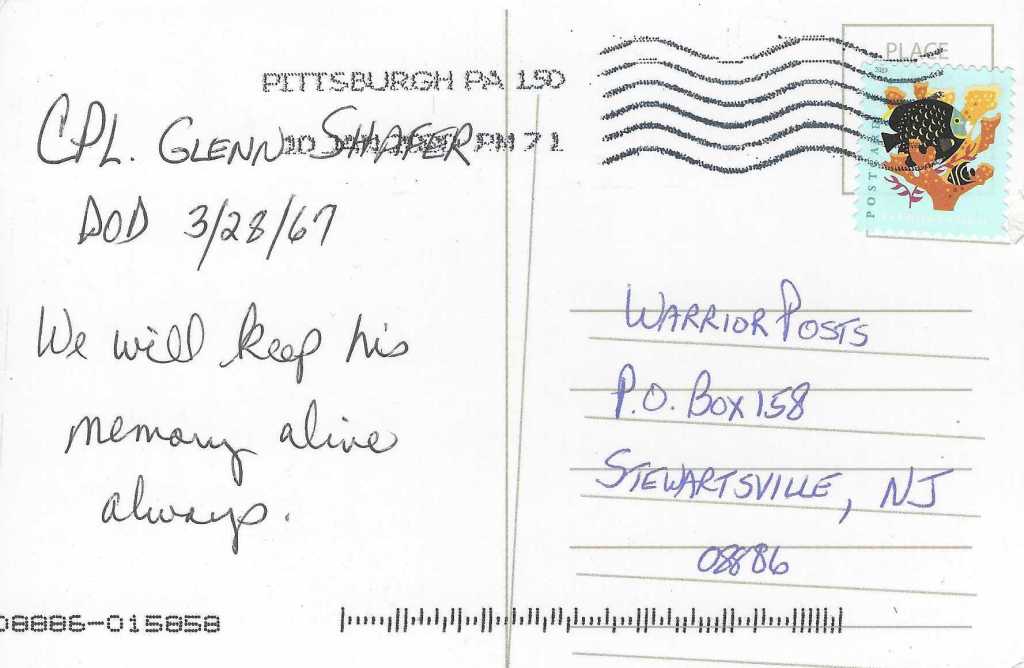 PITTSBURGH PA 150
PM 7 L
CPL. GLENN SHAFER
DOD 3/28/67
We will keep his
memory alive
always.
PLACE
2019
WARRIOR POSTS
P.O. BOX 158
STEWARTSVILLE, NJ
08886
08886-015858